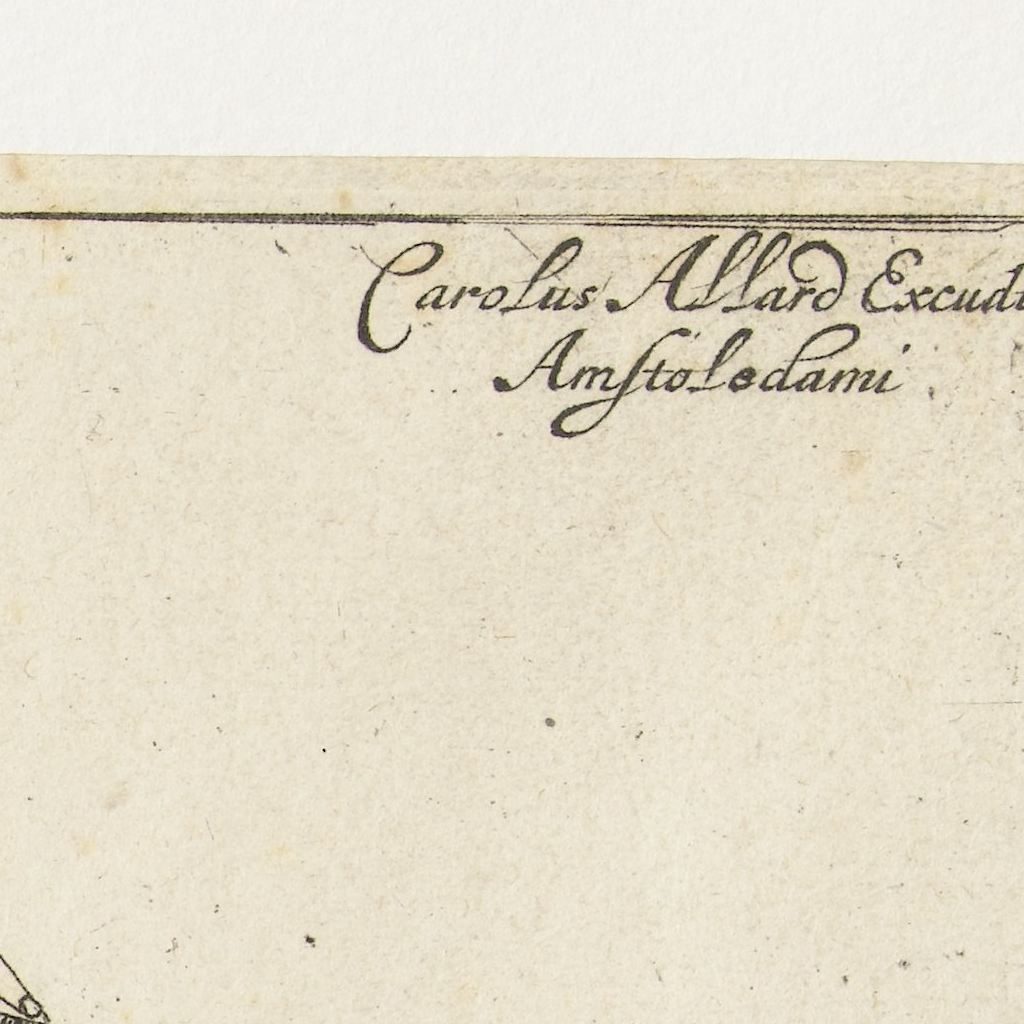 Carolus Allard Excudi
Amstoledami